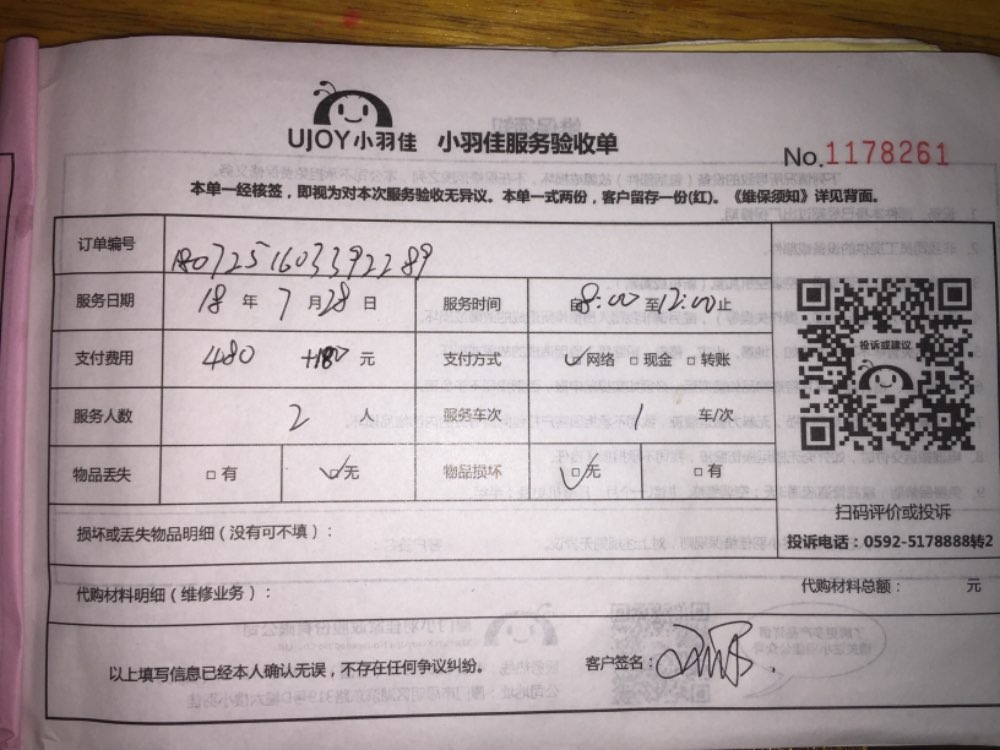 UJOY小羽佳 小羽佳服务验收单
No.1178261
本单一经核签，即视为对本次服务验收无异议。本单一式两份，客户留存一份(红)。《维保须知》详见背面。
订单编号 1807251603392289
服务日期 18 年 7 月 28 日 服务时间 自8:00至12:00止
支付费用 480 +180 元 支付方式 ☑网络 □现金 □转账
服务人数 2 人 服务车次 1 车/次
物品丢失 □有 ☑无 物品损坏 ☑无 □有
投诉或建议
扫码评价或投诉
投诉电话：0592-5178888转2
损坏或丢失物品明细（没有可不填）：
代购材料明细（维修业务）： 代购材料总额： 元
以上填写信息已经本人确认无误，不存在任何争议纠纷。 客户签名：